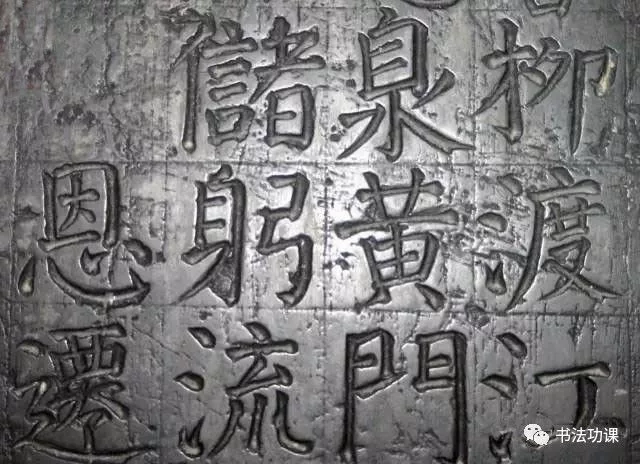 柳渡
泉黃門
儲躬流
恩遷
书法功课